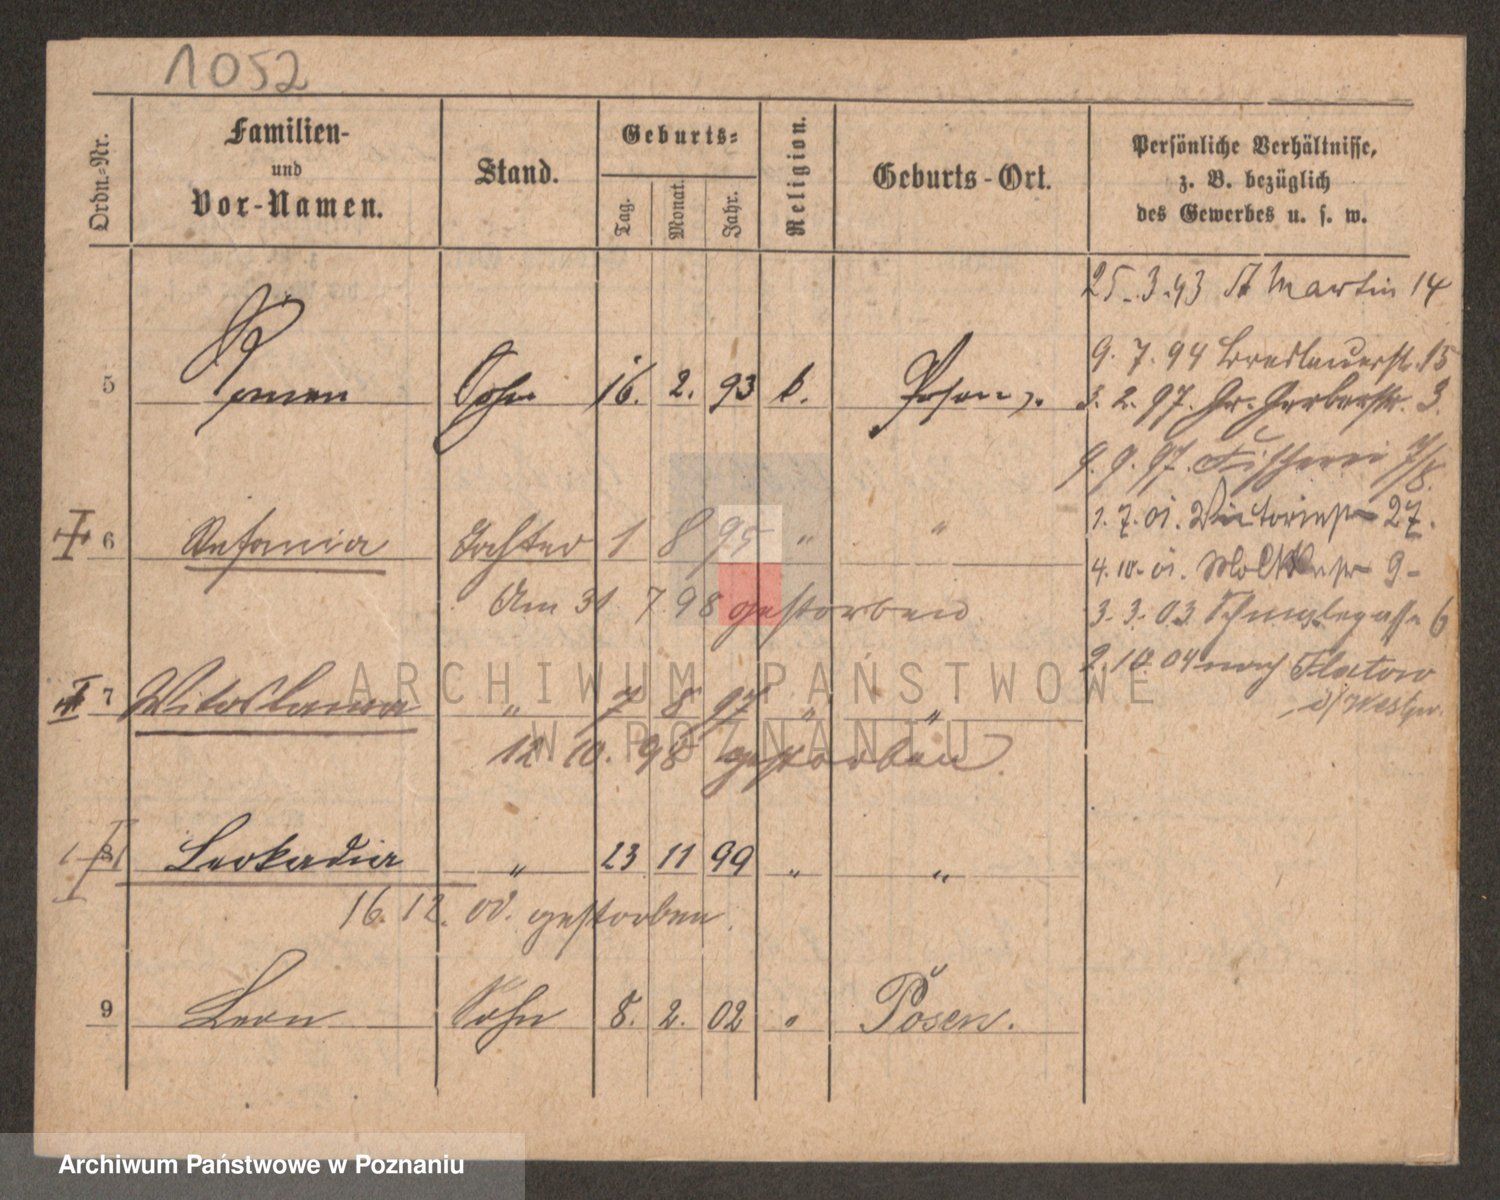 1052
Ordn.-Nr.
Familien-
und
Vor-Namen.
Stand.
Geburts-
Tag.
Monat.
Jahr.
Religion.
Geburts-Ort.
Persönliche Verhältnisse,
z. B. bezüglich
des Gewerbes u. s. w.
25.3.93 St Martin 14
9.7.94 Breslauerstr. 15
5 Roman Sohn 16. 2. 93 k. Posen.
3.2.97. Gr. Gerberstr. 3.
9.9.97. Fischerei 7/8.
1.7.01. Victoriastr 27.
6 Stefania Tochter 1 8 95 " "
4.10.01. Moltkestr 9
Am 31 7 98 gestorben
3.3.03 Schulgasse 6
2.10.04 nach Flatow
i/Westpr.
7 Witoslawa " 7 8 97 " "
12. 10. 98 gestorben
8 Leokadia " 23 11 99 " "
16. 12. 01. gestorben.
9 Leon Sohn 8. 2. 02 " Posen.
ARCHIWUM PAŃSTWOWE
W POZNANIU
Archiwum Państwowe w Poznaniu